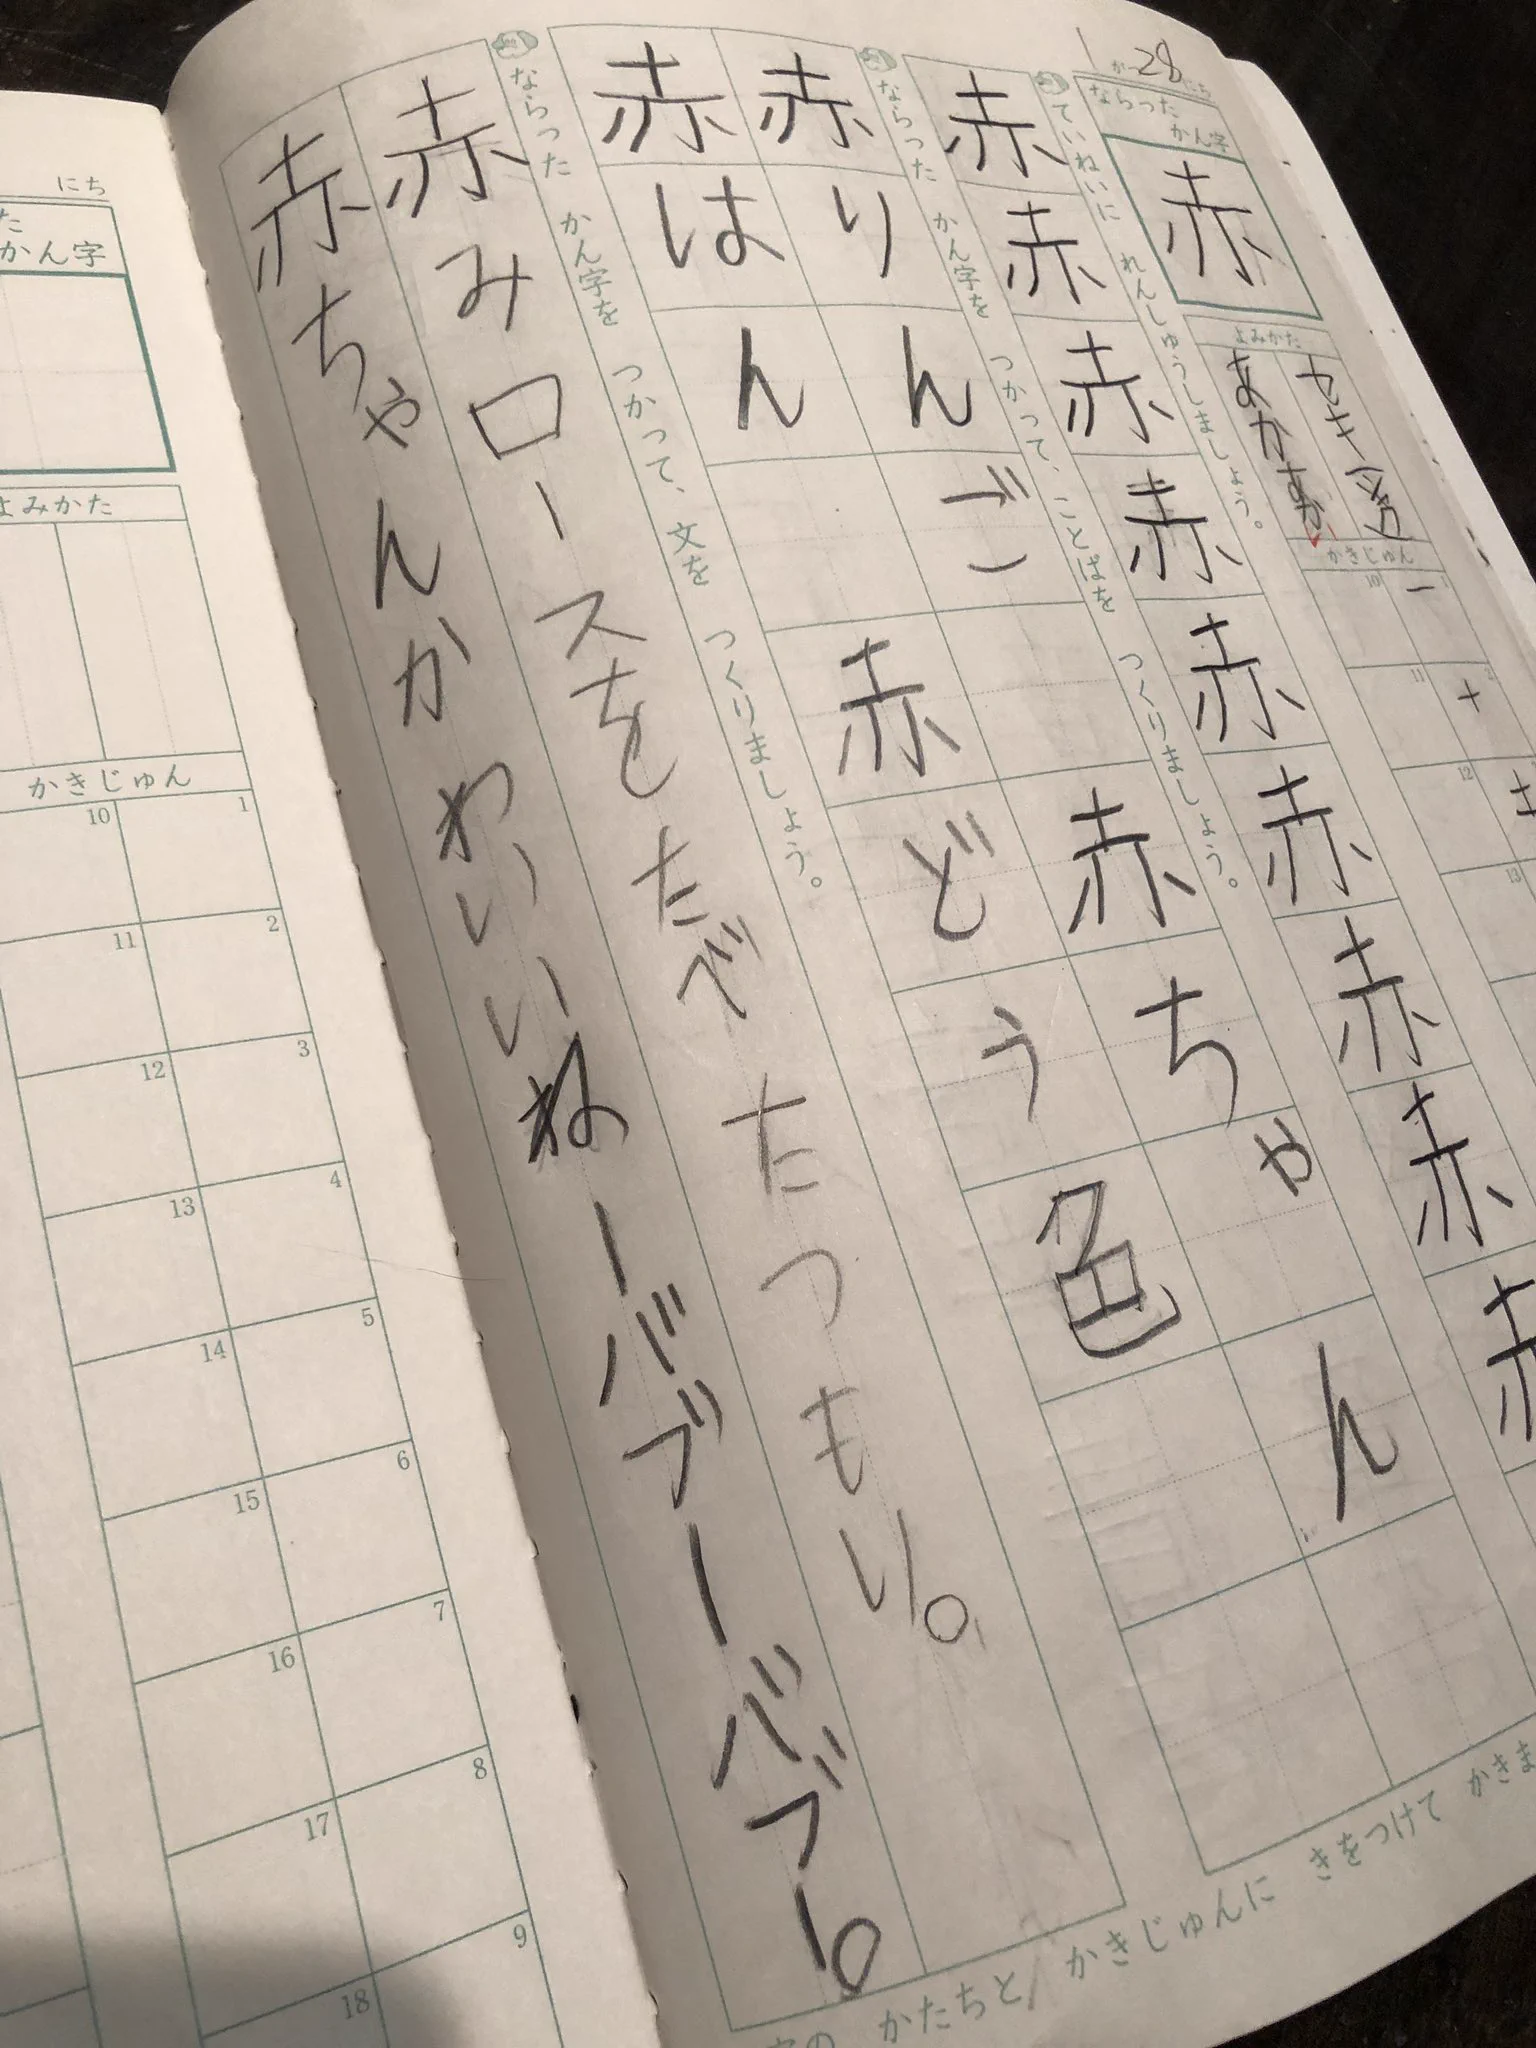 28にち
ならった
かん字
赤
よみかた
せき
あか
かきじゅん
1 一
2 十
10
11
12
13
ていねいに れんしゅうしましょう。
赤赤赤赤赤赤赤赤赤
ならった かん字を つかって、ことばを つくりましょう。
赤りんご 赤ちゃん
赤はん 赤どう色
ならった かん字を つかって、文を つくりましょう。
赤みロースをたべたつもり。
赤ちゃんかわいいねーバブーバブー。
かたちと かきじゅんに きをつけて かきま
にち
た
かん字
よみかた
かきじゅん
1
2
3
4
5
6
7
8
9
10
11
12
13
14
15
16
17
18